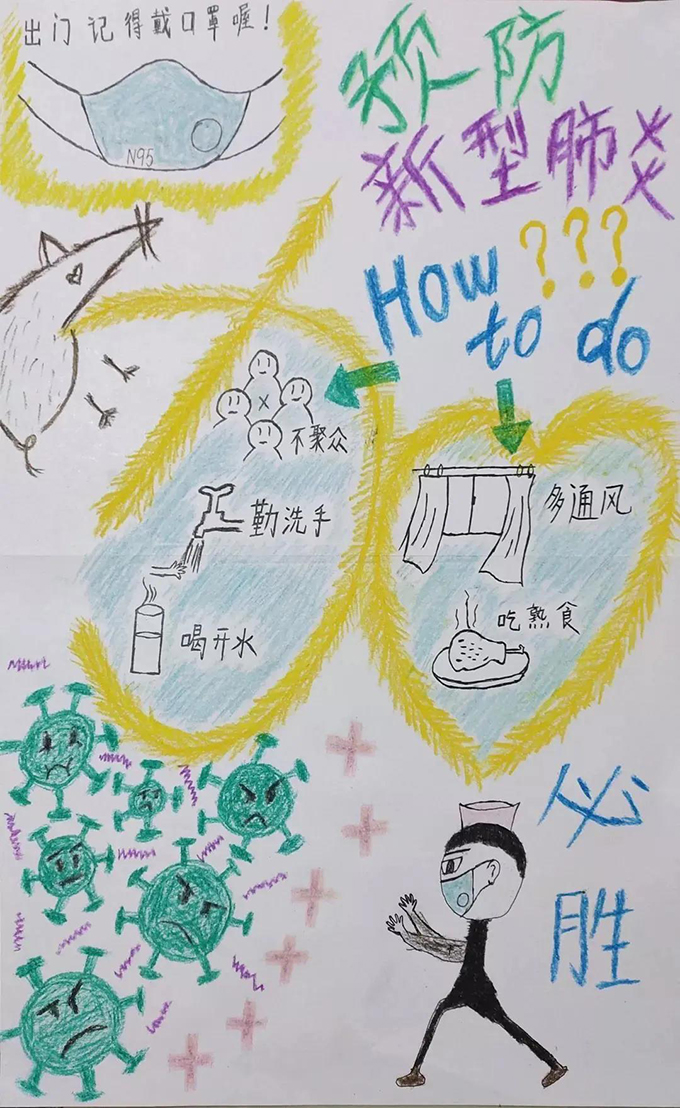 出门 记得戴口罩喔！
N95
预防
新型肺炎
How ???
to do
不聚众
勤洗手
喝开水
多通风
吃熟食
必
胜